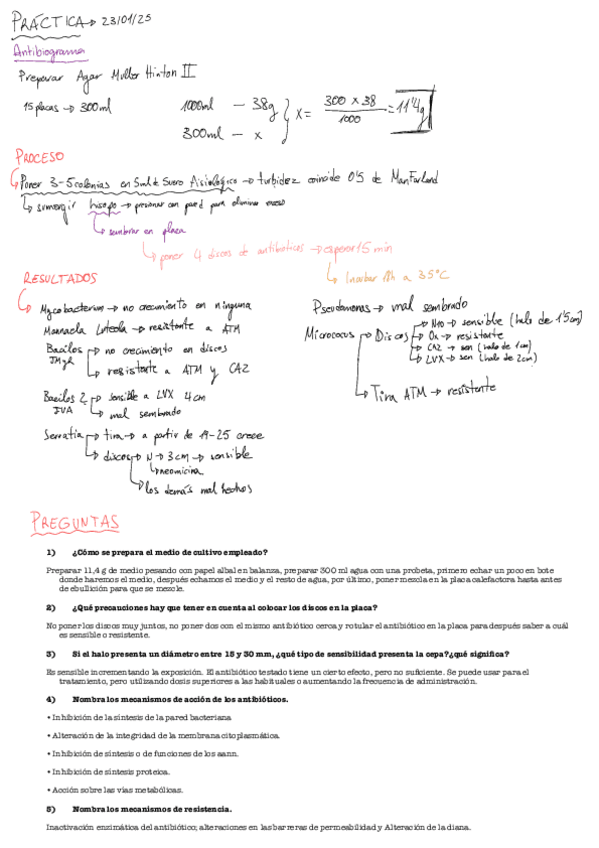 PRÁCTICA → 23/01/25
Antibiograma
Preparar Agar Muller Hinton II
15 placas → 300ml
1000ml — 38g
300ml — x
x = 300 x 38 / 1000 = 11'4g
PROCESO
Poner 3-5 colonias en 5ml de Suero Fisiológico → turbidez coincide 0'5 de ManFarland
sumergir hisopo → presionar con pared para eliminar exceso
sembrar en placa
poner 4 discos de antibióticos → esperar 15 min
Incubar 18h a 35°C
RESULTADOS
Mycobacterium → no crecimiento en ninguna
Luteola → resistente a ATM
Bacilos → no crecimiento en discos
→ resistente a ATM y CAZ
Bacilos 2 → sensible a LVX 4cm
JVA → mal sembrado
Serratia → tira → a partir de 19-25 crece
→ discos → N → 3cm → sensible
→ neomicina
→ los demás mal hechos
Pseudomonas → mal sembrado
Micrococus → Discos → N10 → sensible (halo de 1'5cm)
→ Ox → resistente
→ CAZ → sen (halo de 1cm)
→ LVX → sen (halo de 2cm)
→ Tira ATM → resistente
PREGUNTAS
1) ¿Cómo se prepara el medio de cultivo empleado?
Preparar 11,4 g de medio pesando con papel albal en balanza, preparar 300 ml agua con una probeta, primero echar un poco en bote
donde haremos el medio, después echamos el medio y el resto de agua, por último, poner mezcla en la placa calefactora hasta antes
de ebullición para que se mezcle.
2) ¿Qué precauciones hay que tener en cuenta al colocar los discos en la placa?
No poner los discos muy juntos, no poner dos con el mismo antibiótico cerca y rotular el antibiótico en la placa para después saber a cuál
es sensible o resistente.
3) Si el halo presenta un diámetro entre 15 y 30 mm, ¿qué tipo de sensibilidad presenta la cepa?¿qué significa?
Es sensible incrementando la exposición. El antibiótico testado tiene un cierto efecto, pero no suficiente. Se puede usar para el
tratamiento, pero utilizando dosis superiores a las habituales o aumentando la frecuencia de administración.
4) Nombra los mecanismos de acción de los antibióticos.
• Inhibición de la síntesis de la pared bacteriana
• Alteración de la integridad de la membrana citoplasmática.
• Inhibición de síntesis o de funciones de los aann.
• Inhibición de síntesis proteica.
• Acción sobre las vías metabólicas.
5) Nombra los mecanismos de resistencia.
Inactivación enzimática del antibiótico; alteraciones en las barreras de permeabilidad y Alteración de la diana.